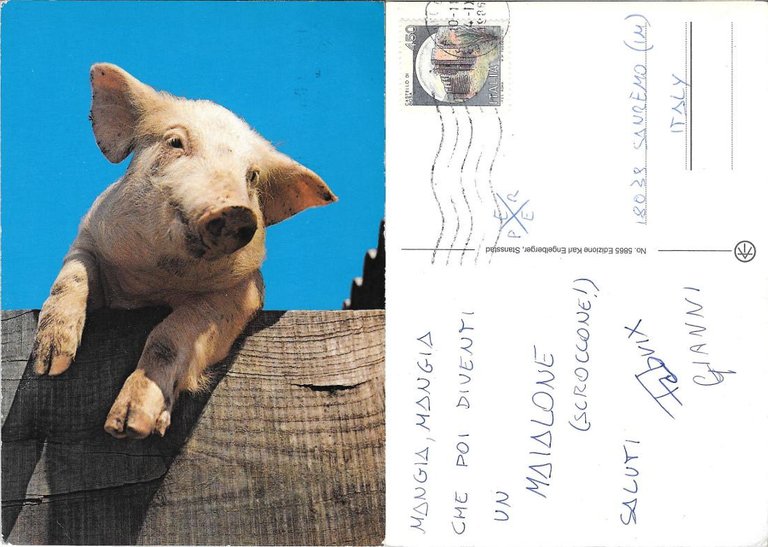 MANGIA, MANGIA
CHE POI DIVENTI
UN
MAIALONE
(SCROCCONE!)
SALUTI
GIANNI
No. 5865 Edizione Karl Engelberger, Stansstad
PER
18038 SANREMO (IM)
ITALY
CASTELLO DI
450
ITALIA